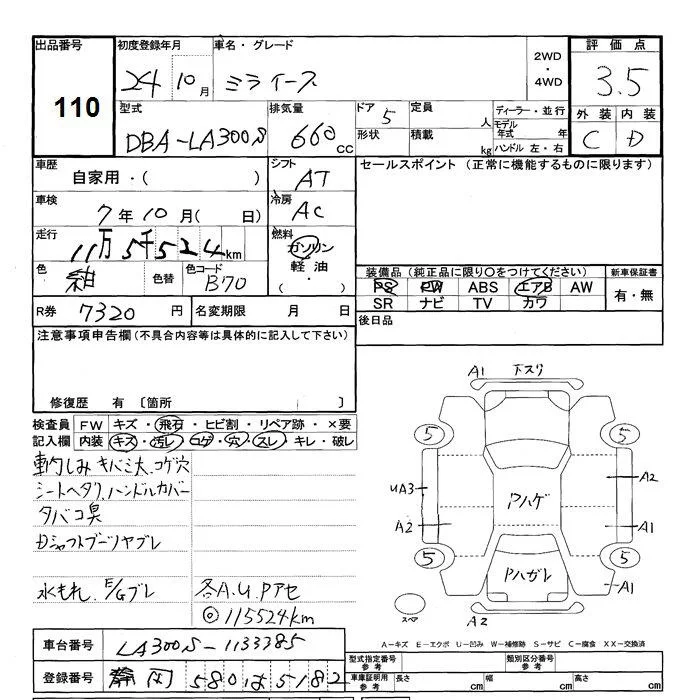 出品番号 110
初度登録年月 24 10月
車名・グレード ミライース
2WD ・ 4WD
評価点 3.5
外装 C 内装 D
型式 DBA-LA300S
排気量 660 CC
ドア 5
形状
定員 人
積載 kg
ディーラー・並行
モデル年式 年
ハンドル 左・右
車歴 自家用・( )
シフト AT
セールスポイント (正常に機能するものに限ります)
車検 7年10月( 日)
冷房 AC
走行 11万5千524km
燃料 ガソリン 軽油 ( ・ )
色 紺 色替 色コード B70
装備品 (純正品に限り○をつけてください)
新車保証書
PS PW ABS エアB AW
有・無
SR ナビ TV カワ
R券 7320円 名変期限 月 日
後日品
注意事項申告欄 (不具合内容等は具体的に記入して下さい)
修復歴 有 〔箇所 〕
検査員記入欄
FW キズ・飛石・ヒビ割・リペア跡・×要
内装 キズ・汚レ・コゲ・穴・スレ・キレ・破レ
シートヘタリ、ハンドルカバー
タバコ臭
Dシャフトブーツヤブレ
水もれ、E/Gブレ
各A.U.Pアセ
◎115524km
A1 下スリ
5 5
UA3 A2
Pハゲ
A2 A1
5 5
Pハガレ A1
スペア A2
A-キズ E-エクボ U-凹み W-補修跡 S-サビ C-腐食 XX-交換済
車台番号 LA300S-1133785
型式指定番号 参考
類別区分番号 参考
登録番号 静岡 580 は 5182
車庫証明用 参考 長さ cm 幅 cm 高さ cm